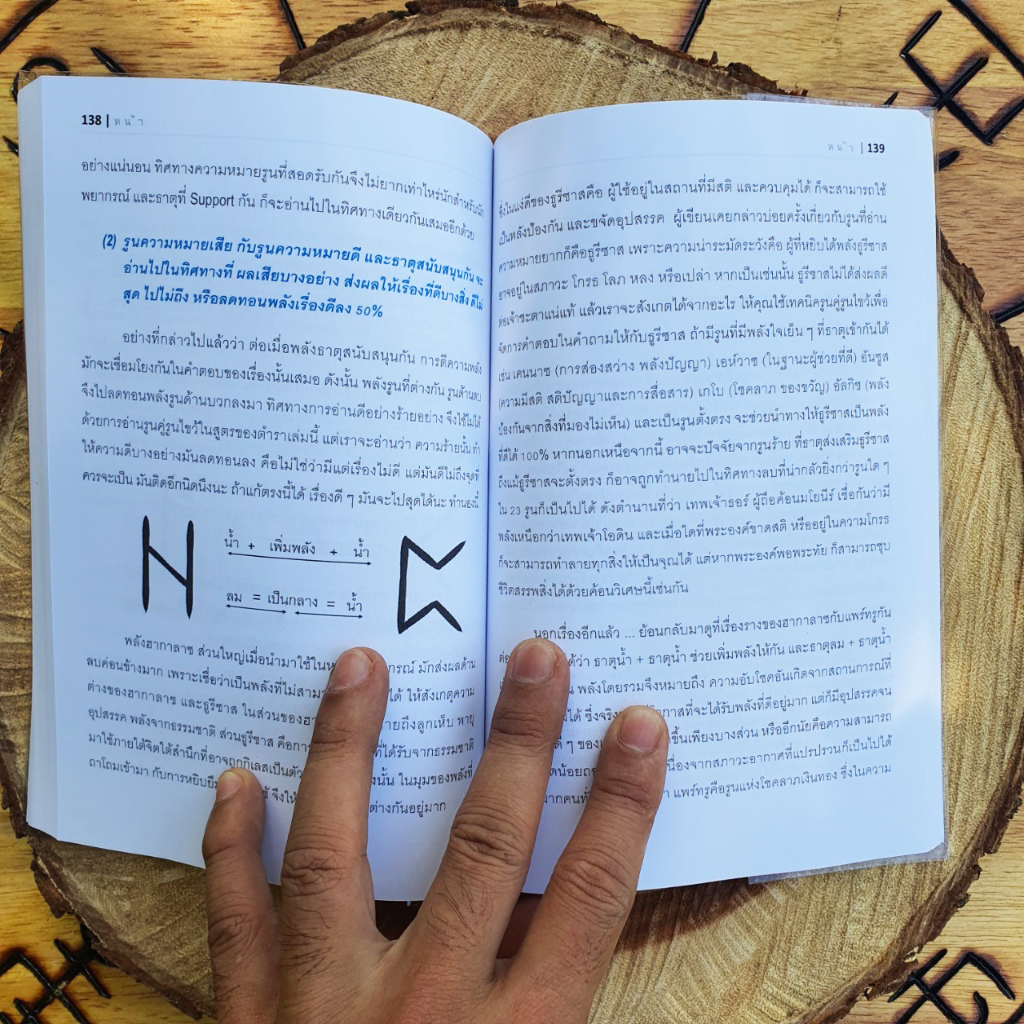 138 | ห น ้ า
อย่างแน่นอน ทิศทางความหมายรูนที่สอดรับกันจึงไม่ยากเท่าไหร่นักสำหรับนัก
พยากรณ์ และธาตุที่ Support กัน ก็จะอ่านไปในทิศทางเดียวกันเสมออีกด้วย
(2) รูนความหมายเสีย กับรูนความหมายดี และธาตุสนับสนุนกัน จะ
อ่านไปในทิศทางที่ ผลเสียบางอย่าง ส่งผลให้เรื่องที่ดีบางสิ่ง ดีไม่
สุด ไปไม่ถึง หรือลดทอนพลังเรื่องดีลง 50%
อย่างที่กล่าวไปแล้วว่า ต่อเมื่อพลังธาตุสนับสนุนกัน การตีความพลัง
มักจะเชื่อมโยงกันในคำตอบของเรื่องนั้นเสมอ ดังนั้น พลังรูนที่ต่างกัน รูนด้านลบ
จึงไปลดทอนพลังรูนด้านบวกลงมา ทิศทางการอ่านดีอย่างร้ายอย่าง จึงใช้ไม่ได้
ด้วยการอ่านรูนคู่รูนไขว้ในสูตรของตำราเล่มนี้ แต่เราจะอ่านว่า ความร้ายนั้น ทำ
ให้ความดีบางอย่างมันลดทอนลง คือไม่ใช่ว่ามีแต่เรื่องไม่ดี แต่มันดีไม่ถึงจุดที่
ควรจะเป็น มันติดอีกนิดนึงนะ ถ้าแก้ตรงนี้ได้ เรื่องดี ๆ มันจะไปสุดได้นะ ทำนองนี้
น้ำ + เพิ่มพลัง + น้ำ
ลม = เป็นกลาง = น้ำ
พลังฮากาลาซ ส่วนใหญ่เมื่อนำมาใช้ใน กรณ์ มักส่งผลด้าน
ลบค่อนข้างมาก เพราะเชื่อว่าเป็นพลังที่ไม่สาม ได้ ให้สังเกตความ
ต่างของฮากาลาซ และธูรีซาส ในส่วนของฮา ายถึงลูกเห็บ พายุ
อุปสรรค พลังจากธรรมชาติ ส่วนธูรีซาส คือกา ที่ได้รับจากธรรมชาติ
มาใช้ภายใต้จิตใต้สำนึกที่อาจถูกกิเลสเป็นตัว งนั้น ในมุมของพลังที่
ถาโถมเข้ามา กับการหยิบยืม จึงให้ ต่างกันอยู่มาก
ห น ้ า | 139
ซึ่งในแง่ดีของธูรีซาสคือ ผู้ใช้อยู่ในสถานที่มีสติ และควบคุมได้ ก็จะสามารถใช้
เป็นพลังป้องกัน และขจัดอุปสรรค ผู้เขียนเคยกล่าวบ่อยครั้งเกี่ยวกับรูนที่อ่าน
ความหมายยากก็คือธูรีซาส เพราะความน่าระมัดระวังคือ ผู้ที่หยิบได้พลังธูรีซาส
อาจอยู่ในสภาวะ โกรธ โลภ หลง หรือเปล่า หากเป็นเช่นนั้น ธูรีซาสไม่ได้ส่งผลดี
ต่อเจ้าชะตาแน่แท้ แล้วเราจะสังเกตได้จากอะไร ให้คุณใช้เทคนิครูนคู่รูนไขว้เพื่อ
จัดการคำตอบในคำถามให้กับธูรีซาส ถ้ามีรูนที่มีพลังใจเย็น ๆ ที่ธาตุเข้ากันได้
เช่น เคนนาซ (การส่องสว่าง พลังปัญญา) เอห์วาซ (ในฐานะผู้ช่วยที่ดี) อันซูส
(ความมีสติ สติปัญญาและการสื่อสาร) เกโบ (โชคลาภ ของขวัญ) อัลกิซ (พลัง
ป้องกันจากสิ่งที่มองไม่เห็น) และเป็นรูนตั้งตรง จะช่วยนำทางให้ธูรีซาสเป็นพลัง
ที่ดีได้ 100% หากนอกเหนือจากนี้ อาจจะปัจจัยจากรูนร้าย ที่ธาตุส่งเสริมธูรีซาส
ถึงแม้ธูรีซาสจะตั้งตรง ก็อาจถูกทำนายไปในทิศทางลบที่น่ากลัวยิ่งกว่ารูนใด ๆ
ใน 23 รูนก็เป็นไปได้ ดังตำนานที่ว่า เทพเจ้าธอร์ ผู้ถือค้อนมโยนีร์ เชื่อกันว่ามี
พลังเหนือกว่าเทพเจ้าโอดิน และเมื่อใดที่พระองค์ขาดสติ หรืออยู่ในความโกรธ
ก็จะสามารถทำลายทุกสิ่งให้เป็นจุณได้ แต่หากพระองค์พอพระทัย ก็สามารถชุบ
ชีวิตสรรพสิ่งได้ด้วยค้อนวิเศษนี้เช่นกัน
นอกเรื่องอีกแล้ว ... ย้อนกลับมาดูที่เรื่องรางของฮากาลาซกับแพร์ทรูกัน
ต่อ ได้ว่า ธาตุน้ำ + ธาตุน้ำ ช่วยเพิ่มพลังให้กัน และธาตุลม + ธาตุน้ำ
น พลังโดยรวมจึงหมายถึง ความอับโชคอันเกิดจากสถานการณ์ที่
ได้ ซึ่งจริง กาสที่จะได้รับพลังที่ดีอยู่มาก แต่ก็มีอุปสรรคจน
ดี ๆ ของ ขึ้นเพียงบางส่วน หรืออีกนัยคือความสามารถ
น้อยถ นื่องจากสภาวะอากาศที่แปรปรวนก็เป็นไปได้
มากคนทั แพร์ทรูคือรูนแห่งโชคลาภเงินทอง ซึ่งในความ